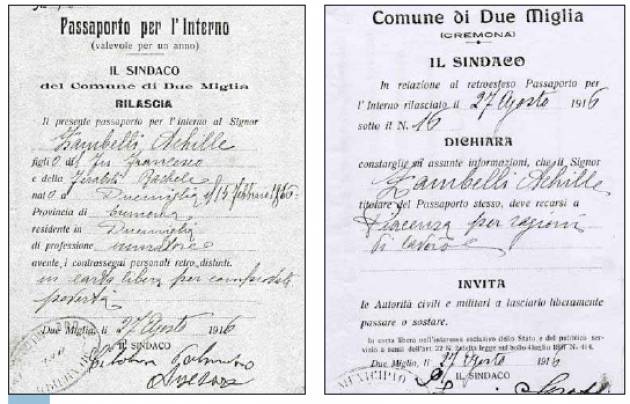 Passaporto per l'Interno
(valevole per un anno)
IL SINDACO
del Comune di Due Miglia
RILASCIA
Il presente passaporto per l'interno al Signor
Zambelli Achille
figlio di fu Francesco
e della Rachele
nato a Duemiglia il 15 Febbraio
Provincia di Cremona
residente in Duemiglia
di professione muratore
avente i contrassegni personali retro distinti.
in carta libera per comprovata
povertà
Due Miglia, li 27 Agosto 1916
IL SINDACO
Comune di Due Miglia
(CREMONA)
IL SINDACO
In relazione al retroesteso Passaporto per
l'Interno rilasciato il 27 Agosto 1916
sotto il N. 16
DICHIARA
constargli assunte informazioni, che il Signor
Zambelli Achille
titolare del Passaporto stesso, deve recarsi a
Piacenza per ragioni
di lavoro
INVITA
le Autorità civili e militari a lasciarlo liberamente
passare o sostare.
In carta libera nell'interesse esclusivo dello Stato e del pubblico ser-
vizio a sensi dell'art. 22 N. legge sul bollo 4 Luglio N. 414.
Due Miglia, li 27 Agosto 1916
IL SINDACO
MUNICIPIO